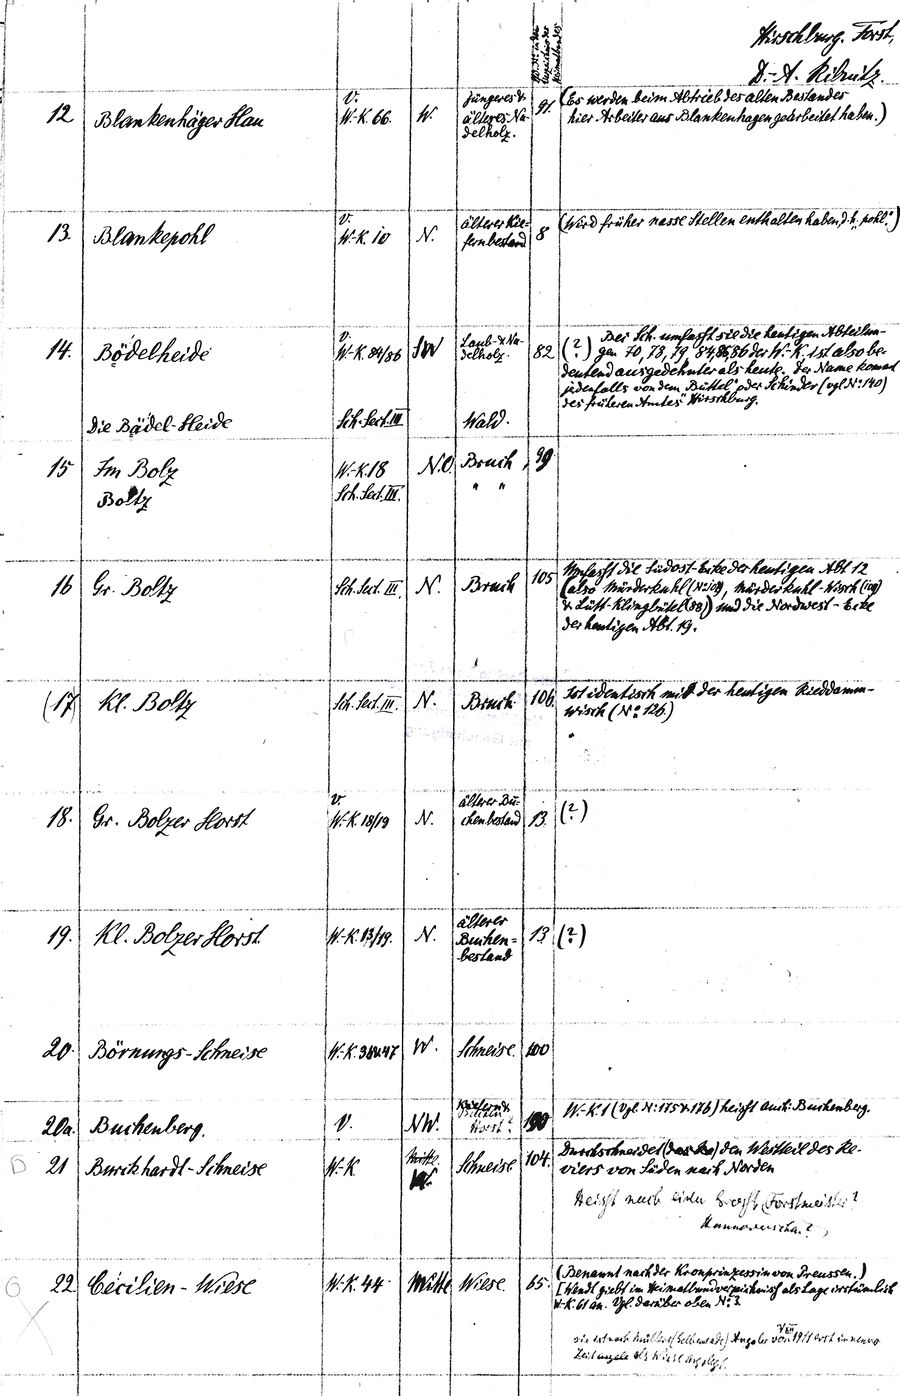 Hirschburg. Forst,
D.-A. Ribnitz.
12 Blankenhäger Hau V. W.-K. 66. W. Jüngeres & älteres Na-delholz. 91. (Es werden beim Abtrieb des alten Bestandes
hier Arbeiter aus Blankenhagen gearbeitet haben.)
13. Blankepohl V. W.-K. 10 N. älterer Kie-fernbestand 8 (Wird früher nasse Stellen enthalten haben d. h. "pohl".)
14. Bödelheide V. W.-K. 84/86 SW Laub- & Na-delholz. 82 (?) Bei Sch. umfasst sie die heutigen Abteilun-
gen 70, 78, 79, 84, 85, 86 der W.-K. ist also be-
deutend ausgedehnter als heute. Der Name kommt
jedenfalls von dem "Büttel" oder Schinder (vgl. No 140)
des früheren Amtes Hirschburg.
Die Bädel-Heide Sch. Sect. III Wald.
15 Im Bolz W.-K. 18 N.O. Bruch, 99
Boltz Sch. Sect. III. " "
16 Gr. Boltz Sch. Sect. III N. Bruch 105 Umfasst die Südost-Ecke der heutigen Abt. 12
(also Mürderkuhl, Mürderkuhl-Wisch
& Lütt-Klingbütel (98)) und die Nordwest-Ecke
der heutigen Abt. 19.
(17 Kl. Boltz Sch. Sect. III. N. Bruch 106. Ist identisch mit der heutigen Rieddamm-
wisch (No 126)
18. Gr. Bolzer Horst V. W.-K. 18/19 N. älterer Bu-chenbestand 13 (?)
19. Kl. Bolzer Horst W.-K. 13/19. N. älterer Buchen=bestand 13 (?)
20. Börnungs-Schneise W.-K. W. Schneise. 100
20a. Buchenberg. V. NW. Horst? 190 W.-K. 1 (Vgl. No 175 & 176) heisst auch: Buchenberg.
21 Burckhardt-Schneise W.-K Mitte Schneise 104. Durchschneidet den Westteil des Re-
viers von Süden nach Norden
Heisst nach einem Forstmeister?
22. Cécilien-Wiese W.-K. 44 Mitte Wiese. 65. (Benannt nach der Kronprinzessin von Preussen.)
[Wendt giebt im Heimatbundverzeichnis als Lage irrtümlich
W.-K. 61 an. Vgl. darüber oben No 3.
Angabe von 1911 erst in neuer
Zeit als Wiese angelegt.